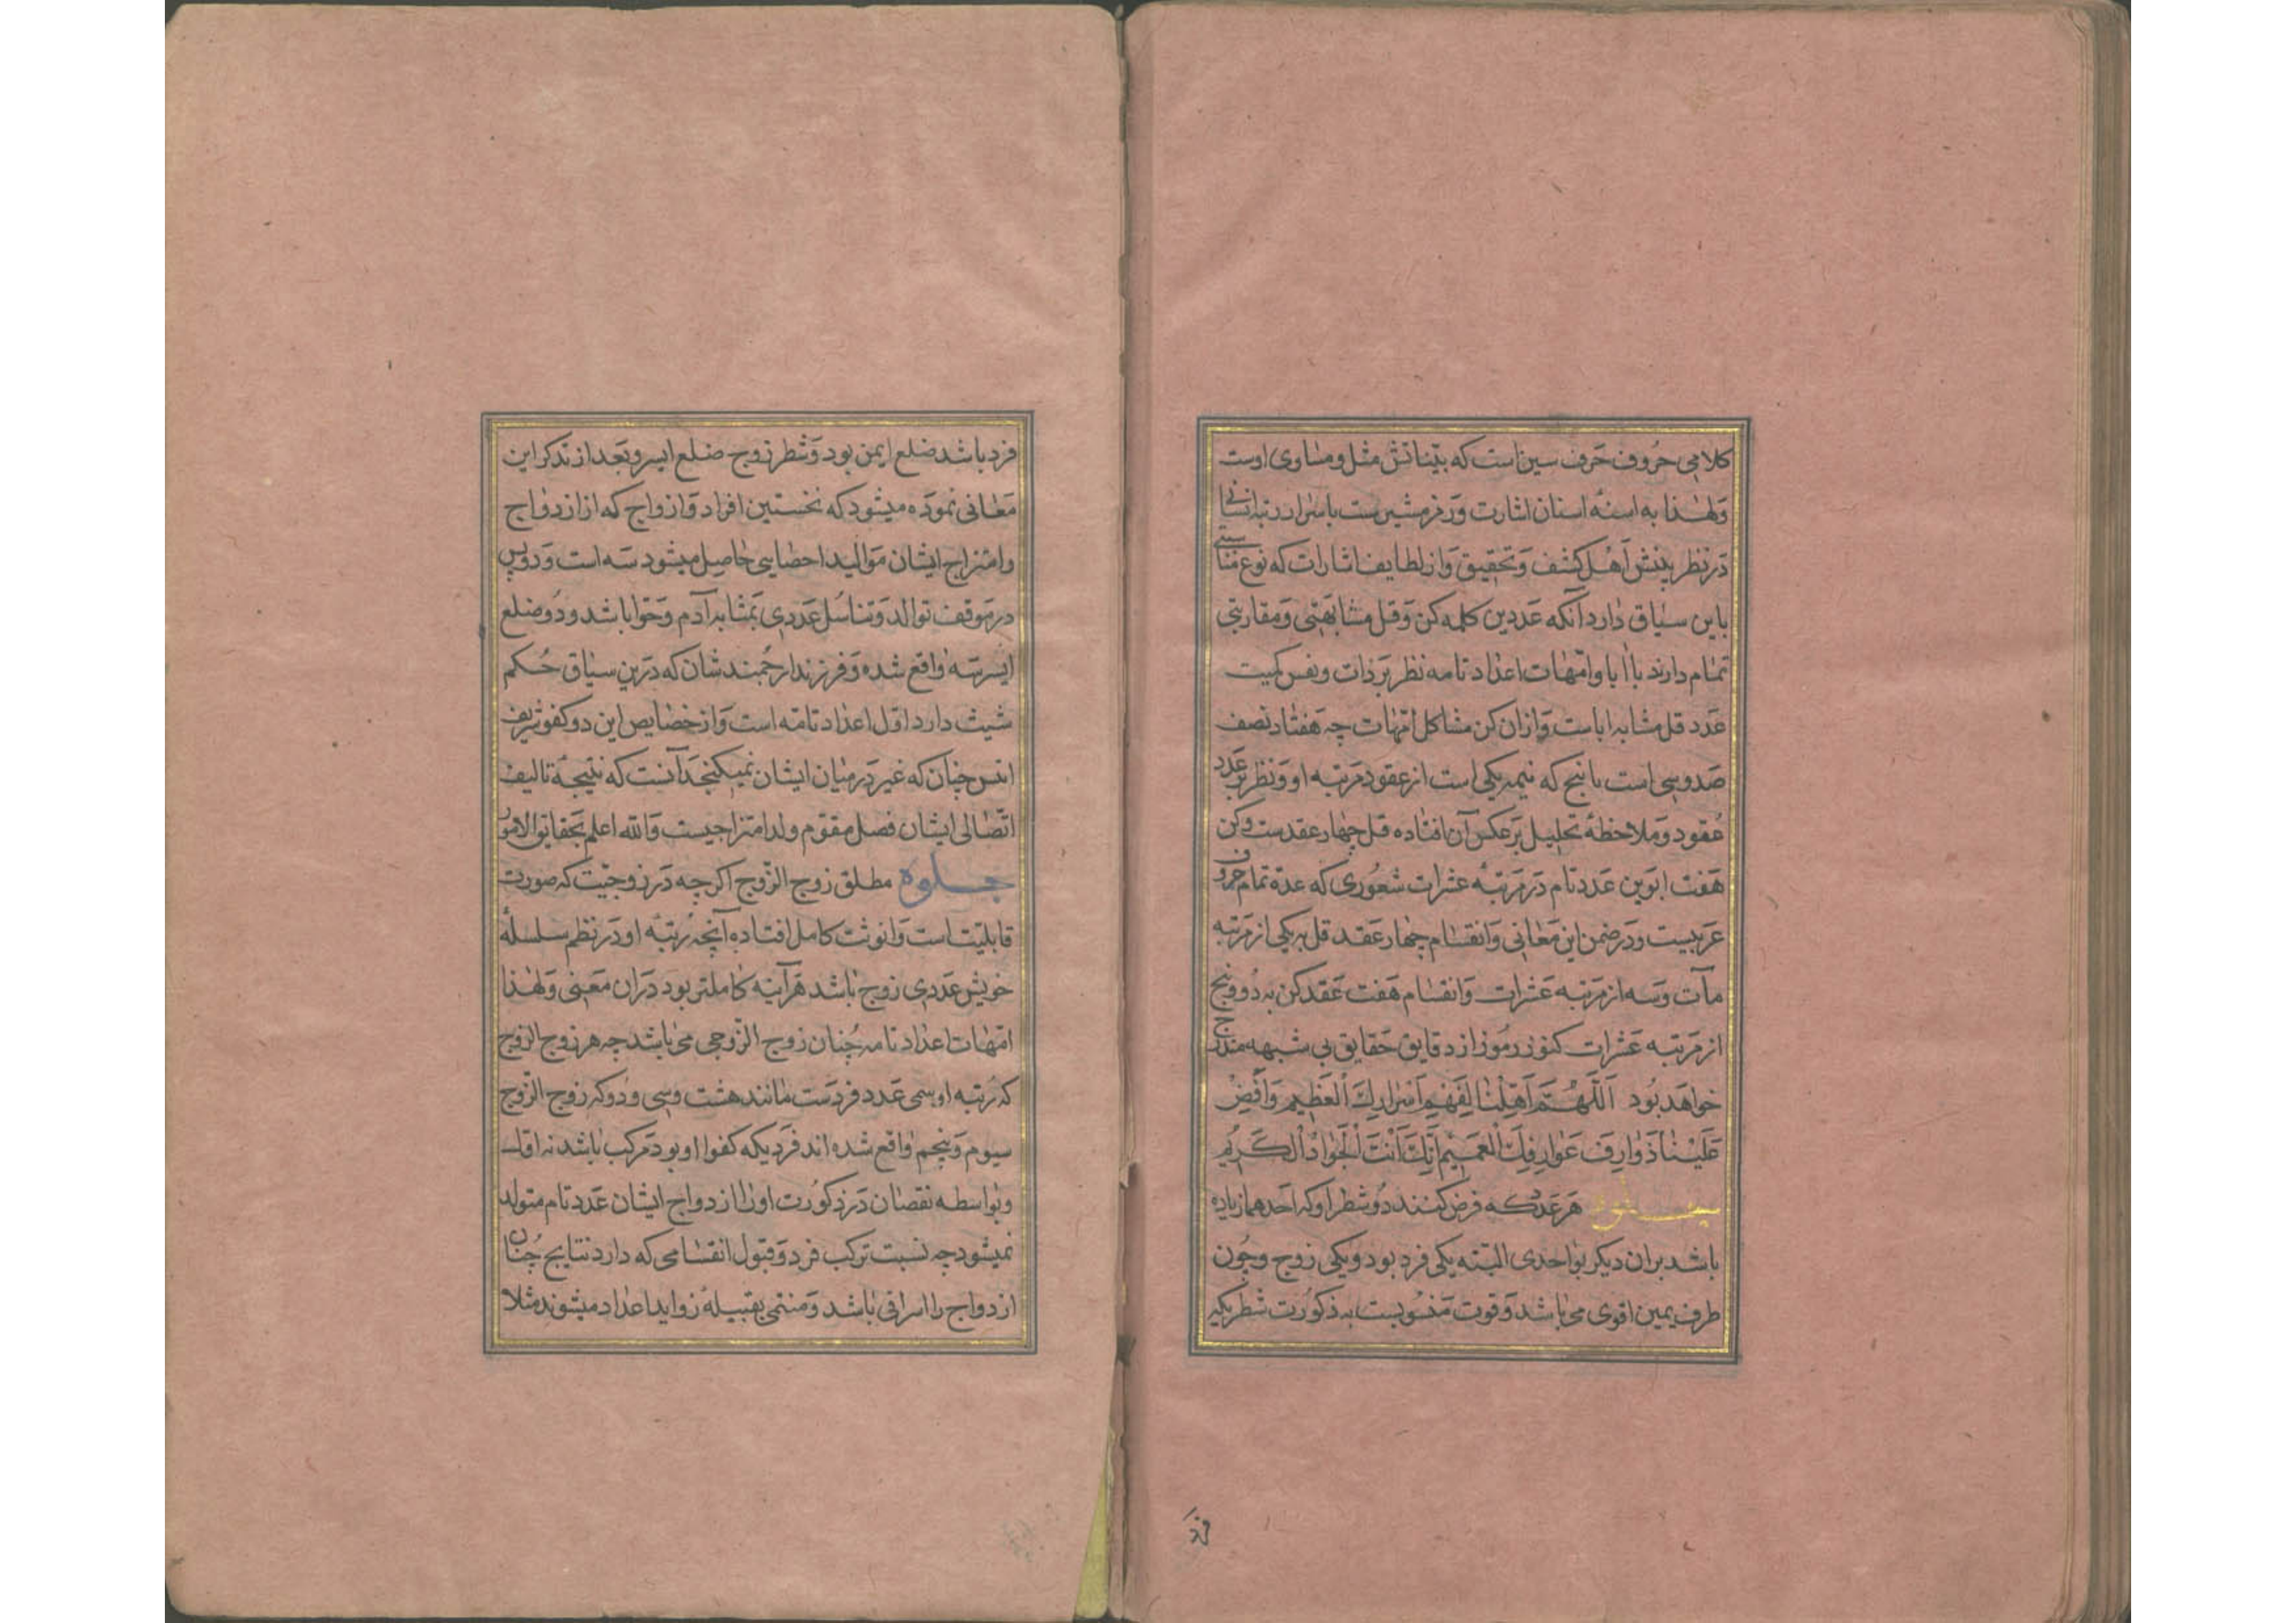 کلامی حروف حرف سین است که بیناتش مثل و مساوی اوست
ولهذا به اسنه اسنان اشارت و رمز مشیرست باسرار رتبه انسانی
در نظر بینش اهل کشف و تحقیق و از لطایف اشارات که نوع مناسبتی
باین سیاق دارد آنکه عددین کلمه کن و قل مشابهتی و مقاربتی
تمام دارند با ابا و امهات اعداد تامه نظر بر ذات و نفس کمیت
عدد قل مشابه اباست و ازان کن مشاکل امهات چه هفتاد نصف
صد و سی است با پنج که نیمه یکی است از عقود مرتبه او و نظر بر عدد
عقود و ملاحظه تحلیل بر عکس آن افتاده قل چهار عقدست و کن
هفت ابوین عدد تام در مرتبه عشرات شعوری که عده تمام حروف
عربیست و در ضمن این معانی و انقسام چهار عقد قل بر یکی از مرتبه
مآت و سه از مرتبه عشرات و انقسام هفت عقد کن به دو و پنج
از مرتبه عشرات کنوز رموز از دقایق حقایق بی شبهه مندرج
خواهد بود اَللّهُمَّ اَهِّلْنا لِفَهْمِ اَسْرارِكَ الْعَظیمِ وَ اَفِضْ
عَلَیْنا ذَوارِفَ عَوارِفِكَ الْعَمیمِ اِنَّكَ اَنْتَ الْجَوادُ الْکَریمُ
هر عدد که فرض کنند دو شطر او که احدهما زیاده
باشد بران دیگر بواحدی البته یکی فرد بود و یکی زوج و چون
طرف یمین اقوی می باشد و قوت منسوبست به ذکورت شطر یکه
فرد
فرد باشد ضلع ایمن بود و شطر زوج ضلع ایسر و بعد از تذکر این
معانی نموده میشود که نخستین افراد و ازواج که از ازدواج
و امتزاج ایشان موالید احصایی حاصل میشود سه است و دو پس
در موقف توالد و تناسل عددی بمثابه آدم و حوا باشد و دو ضلع
ایسر سه واقع شده و فرزند ارجمند شان که درین سیاق حکم
شیث دارد اول اعداد تامه است و از خصایص این دو کفو شریف
انس چنان که غیر در میان ایشان نمیکنجد آنست که نتیجه تالیف
اتصالی ایشان فصل مقوم ولد امتزاجیست والله اعلم بحقایق الامور
جلوه مطلق زوج الزوج اکرچه در زوجیت که صورت
قابلیت است و انوثت کامل افتاده آنچه رتبه او در نظم سلسله
خویش عددی زوج باشد هر آینه کاملتر بود دران معنی و لهذا
امهات اعداد تامه چنان زوج الزوجی می باشد چه هر زوج الزوج
که رتبه او سمی عدد فردست مانند هشت و سی و دو که زوج الزوج
سیوم و پنجم واقع شده اند فردیکه کفو او بود مرکب باشد نه اول
و بواسطه نقصان در ذکورت او را از دواج ایشان عدد تام متولد
نمیشود چه نسبت ترکب فرد و قبول انقسامی که دارد نتایج چنان
ازدواج را اسرافی باشد و منتمی بقبیله زواید اعداد میشوند مثلا